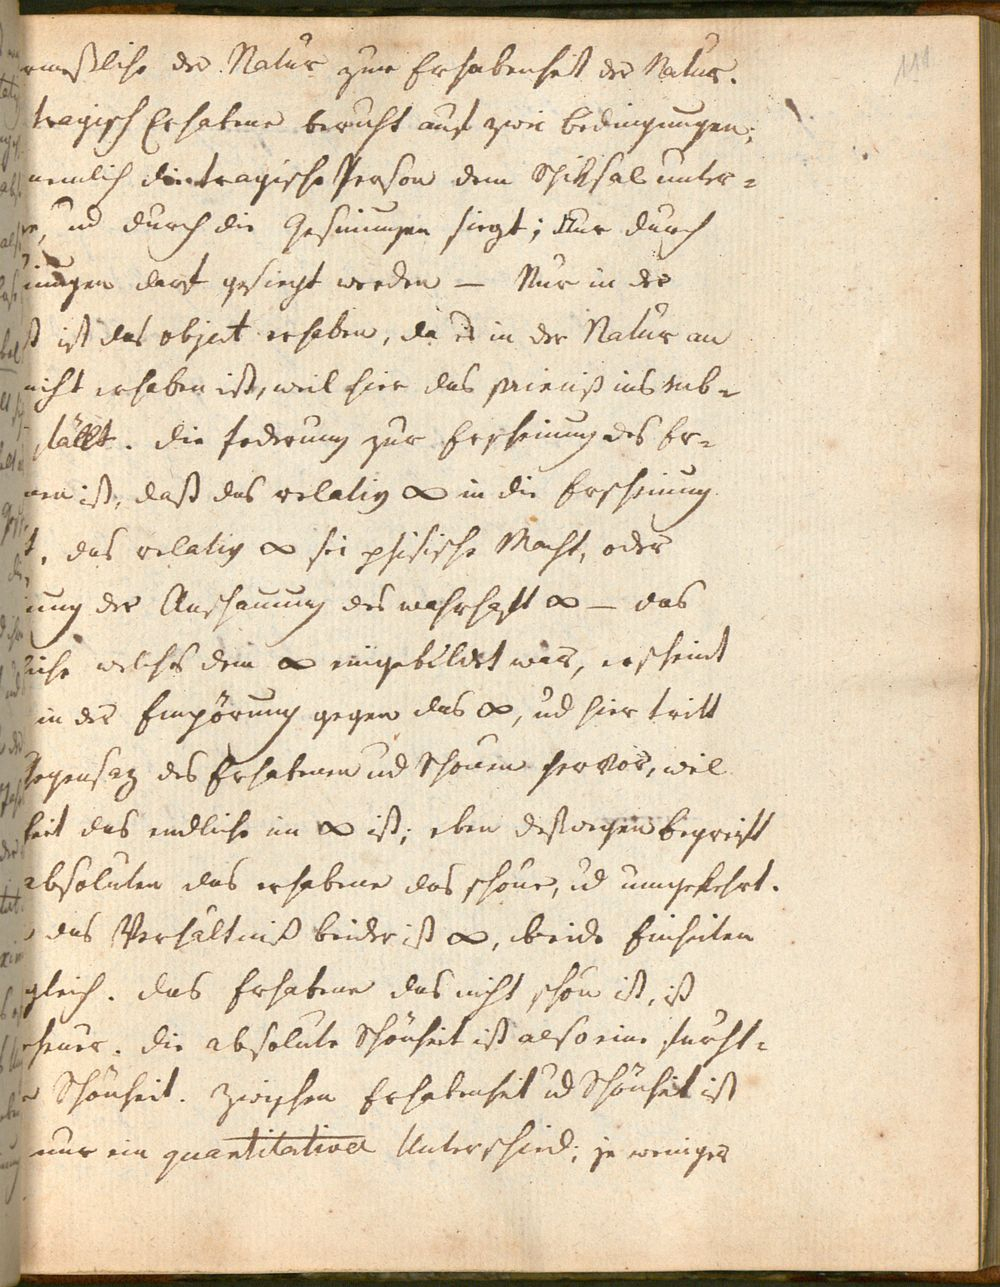 111
rmeßliche der Natur zur Erhabenheit der Natur.
tragisch Erhabene beruht auf zwei bedingungen;
nemlich die tragische Person dem Schiksal unter=
ud durch die Gesinnungen siegt; Nur durch
inungen darf gesiegt werden — Nur in der
ist das object erhaben, da es in der Natur an
nicht erhaben ist, weil hier das ins sub=
fällt. die foderung zur Erscheinung des Er=
nen ist, daß das relativ ∞ in die Erscheinung
das relativ ∞ sei phisische Macht, oder
ung der Anschauung des wahrhaft ∞ — das
liche welches dem ∞ eingebildet war, erscheint
in der Empörung gegen das ∞, ud hier tritt
Gegensaz des Erhabenen ud Schönen hervor, weil
heit das endliche im ∞ ist; eben deßwegen begreift
absoluten das erhabene das schöne, ud umgekehrt.
das Verhältniß beider ist ∞, beide Einheiten
gleich. das Erhabene das nicht schön ist, ist
heuer. die absolute Schönheit ist also eine furcht=
Schönheit. zwischen Erhabenheit ud Schönheit ist
nur ein quantitativer Unterschied; je weniger